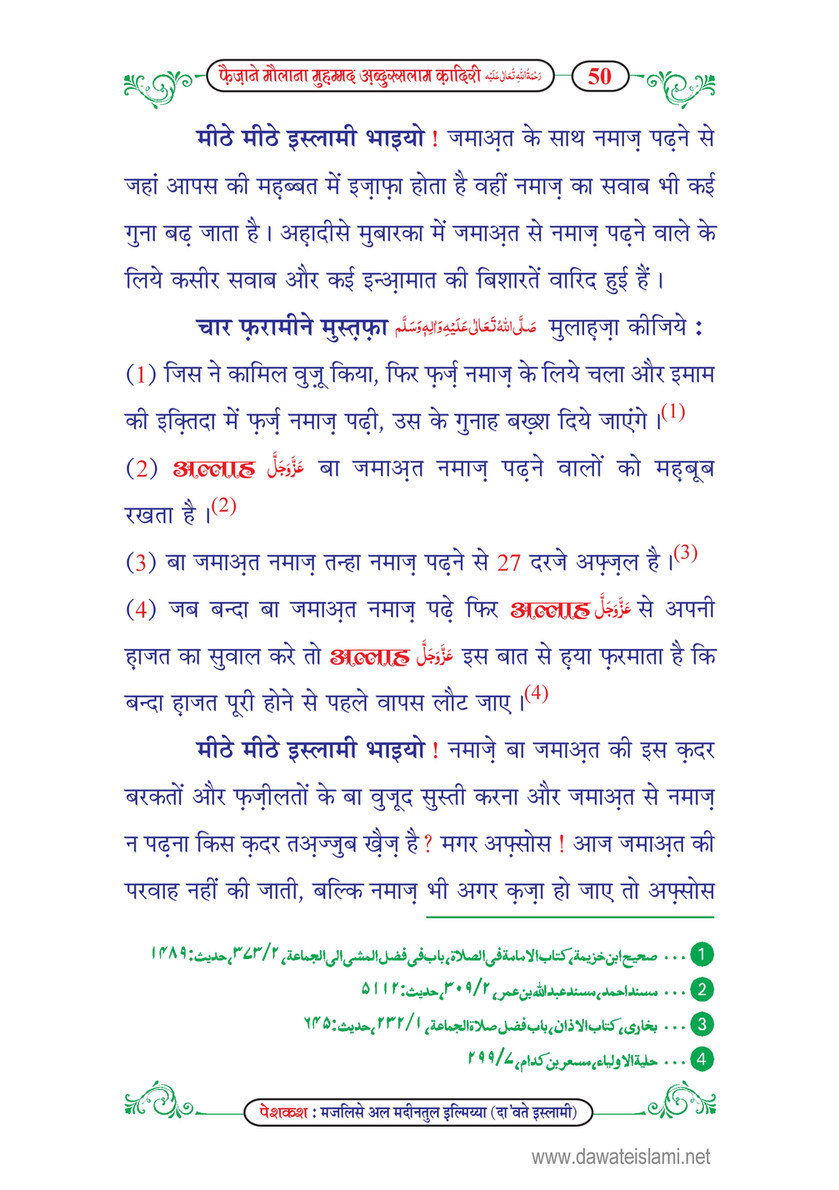 फ़ैज़ाने मौलाना मुहम्मद अब्दुस्सलाम क़ादिरी رَحْمَةُ اللهِ تَعَالٰى عَلَيْه 50
मीठे मीठे इस्लामी भाइयो ! जमाअ़त के साथ नमाज़ पढ़ने से
जहां आपस की मह़ब्बत में इज़ाफ़ा होता है वहीं नमाज़ का सवाब भी कई
गुना बढ़ जाता है । अह़ादीसे मुबारका में जमाअ़त से नमाज़ पढ़ने वाले के
लिये कसीर सवाब और कई इन्आ़मात की बिशारतें वारिद हुई हैं ।
चार फ़रामीने मुस्त़फ़ा صَلَّى اللهُ تَعَالٰى عَلَيْهِ وَاٰلِهٖ وَسَلَّم मुलाह़ज़ा कीजिये :
(1) जिस ने कामिल वुज़ू किया, फिर फ़र्ज़ नमाज़ के लिये चला और इमाम
की इक़्तिदा में फ़र्ज़ नमाज़ पढ़ी, उस के गुनाह बख़्श दिये जाएंगे ।(1)
(2) अल्लाह عَزَّوَجَلَّ बा जमाअ़त नमाज़ पढ़ने वालों को मह़बूब
रखता है ।(2)
(3) बा जमाअ़त नमाज़ तन्हा नमाज़ पढ़ने से 27 दरजे अफ़्ज़ल है ।(3)
(4) जब बन्दा बा जमाअ़त नमाज़ पढ़े फिर अल्लाह عَزَّوَجَلَّ से अपनी
ह़ाजत का सुवाल करे तो अल्लाह عَزَّوَجَلَّ इस बात से ह़या फ़रमाता है कि
बन्दा ह़ाजत पूरी होने से पहले वापस लौट जाए ।(4)
मीठे मीठे इस्लामी भाइयो ! नमाज़े बा जमाअ़त की इस क़दर
बरकतों और फ़ज़ीलतों के बा वुजूद सुस्ती करना और जमाअ़त से नमाज़
न पढ़ना किस क़दर तअ़ज्जुब ख़ैज़ है ? मगर अफ़्सोस ! आज जमाअ़त की
परवाह नहीं की जाती, बल्कि नमाज़ भी अगर क़ज़ा हो जाए तो अफ़्सोस
1 ... صحیح ابن خزیمة، کتاب الامامة فی الصلاة، باب فی فضل المشی الی الجماعة، ۲/۳۷۳، حدیث: ۱۴۸۹
2 ... مسند احمد، مسند عبد الله بن عمر، ۲/۳۰۹، حدیث: ۵۱۱۲
3 ... بخاری، کتاب الاذان، باب فضل صلاة الجماعة، ۱/۲۳۲، حدیث: ۶۴۵
4 ... حلیة الاولیاء، مسعر بن کدام، ۷/۲۹۹
पेशकश : मजलिसे अल मदीनतुल इल्मिय्या (दा'वते इस्लामी)
www.dawateislami.net